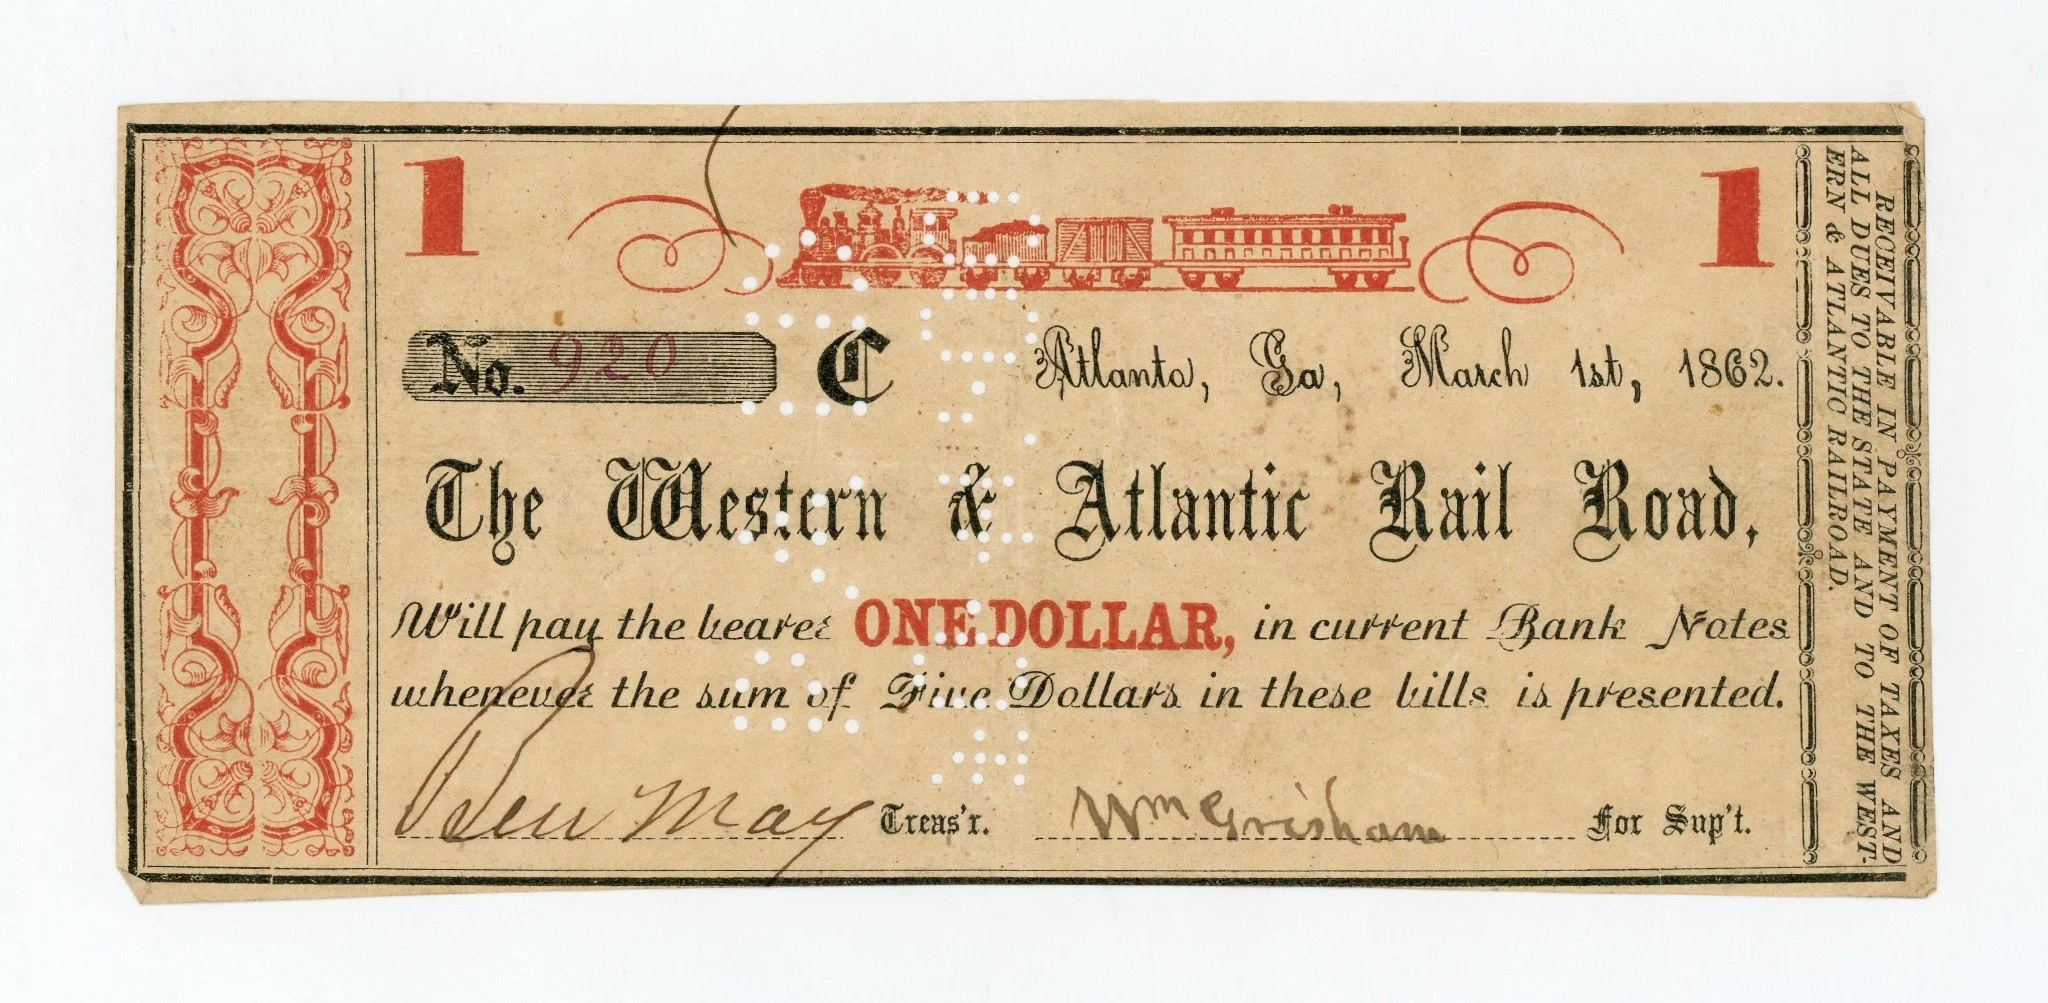 1 1
No. 920 C Atlanta, Ga, March 1st, 1862.
The Western & Atlantic Rail Road,
Will pay the bearer ONE DOLLAR, in current Bank Notes
whenever the sum of Five Dollars in these bills is presented.
Ben May Treas'r. Wm Grisham For Sup't.
RECEIVABLE IN PAYMENT OF TAXES AND
ALL DUES TO THE STATE AND TO THE WEST-
ERN & ATLANTIC RAILROAD.